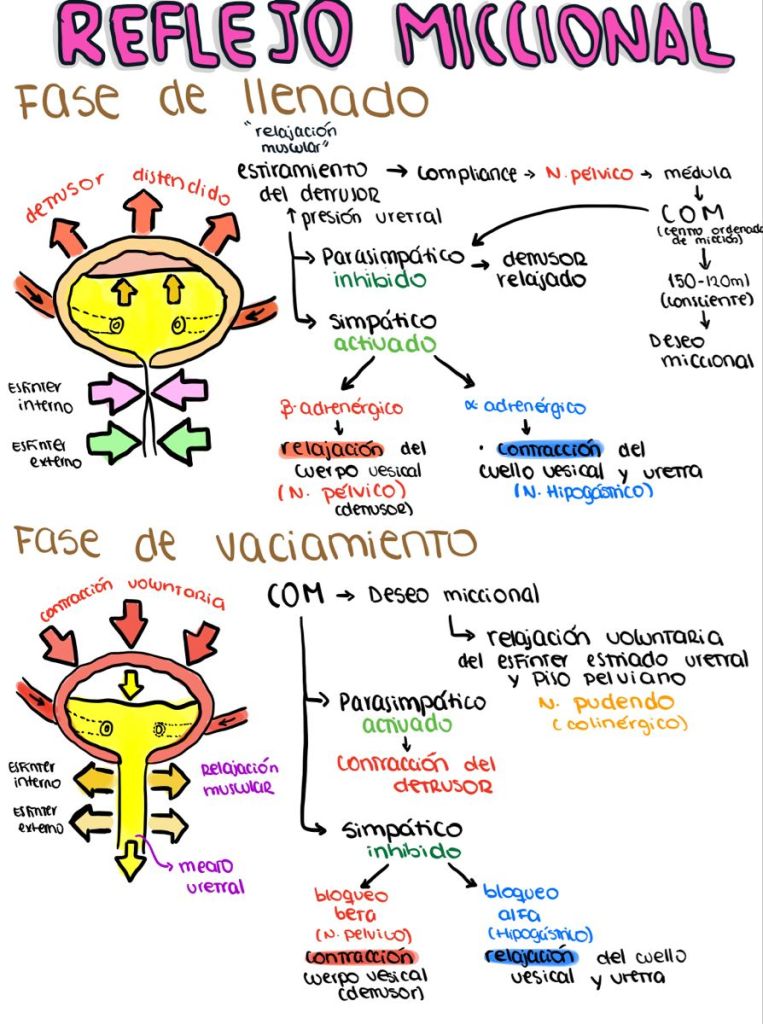 REFLEJO MICCIONAL
Fase de llenado
"relajación
muscular"
estiramiento
del detrusor
→ compliance → N. pélvico → médula
↑ presión uretral
COM
(centro ordenado
de micción)
150-120ml
(consciente)
Deseo
miccional
Parasimpático
inhibido
→ detrusor
relajado
Simpático
activado
β-adrenérgico
relajación del
cuerpo vesical
(N. pélvico)
(detrusor)
α-adrenérgico
· contracción del
cuello vesical y uretra
(N. Hipogástrico)
detrusor distendido
Esfínter
interno
Esfínter
externo
Fase de vaciamiento
contracción voluntaria
COM → Deseo miccional
relajación voluntaria
del esfínter estriado uretral
y piso pelviano
N. pudendo
(colinérgico)
Parasimpático
activado
contracción del
detrusor
Simpático
inhibido
bloqueo
beta
(N. pelvico)
contracción
cuerpo vesical
(detrusor)
bloqueo
alfa
(Hipogástrico)
relajación del cuello
vesical y uretra
Esfínter
interno
Esfínter
externo
Relajación
muscular
meato
uretral